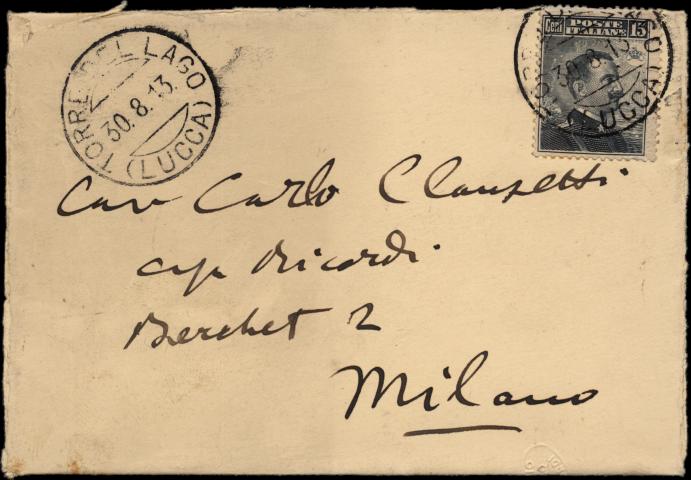 TORRE DEL LAGO
30.8.13.
(LUCCA)
Cent 15
POSTE
ITALIANE
30.8.13
LUCCA)
Cav Carlo Clausetti
Ricordi.
Berchet 2
Milano